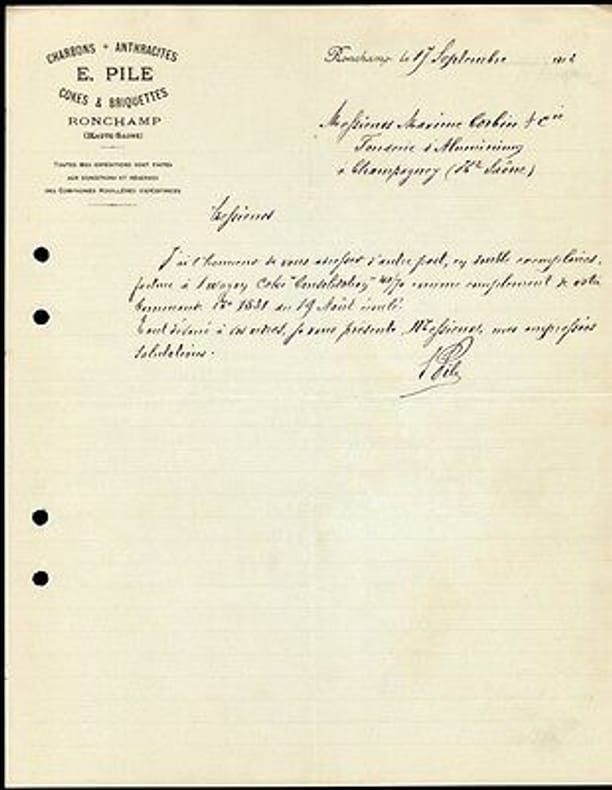 CHARBONS * ANTHRACITES
E. PILE
COKES & BRIQUETTES
RONCHAMP
(HAUTE-SAONE)
TOUTES MES EXPÉDITIONS SONT FAITES
AUX CONDITIONS ET RÉSERVES
DES COMPAGNIES HOUILLÈRES EXPÉDITRICES
Ronchamp, le 17 Septembre
Messieurs Maxime Corbin & Cie
Fonderie d'Aluminium
à Champagney (Hte Saône)
Messieurs
J'ai l'honneur de vous adresser d'autre part, en double exemplaires,
facture à 1 wagon Coke "Consolidation" comme complément de votre
Commande No 1831 du 19 Août écoulé.
Tout dévoué à vos ordres, je vous présente, Messieurs, mes empressées
salutations.
E Pile